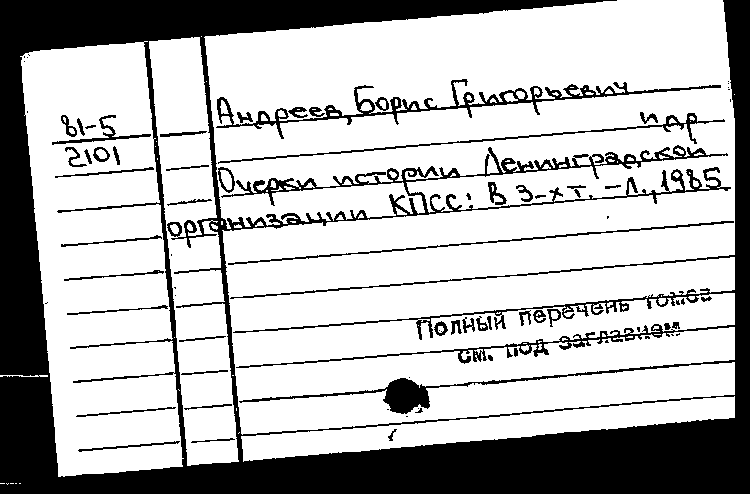 81-5
2101
Андреев, Борис Григорьевич
и др
Очерки истории Ленинградской
организации КПСС: В 3-х т. – Л., 1985
Полный перечень томов
см. под заглавием